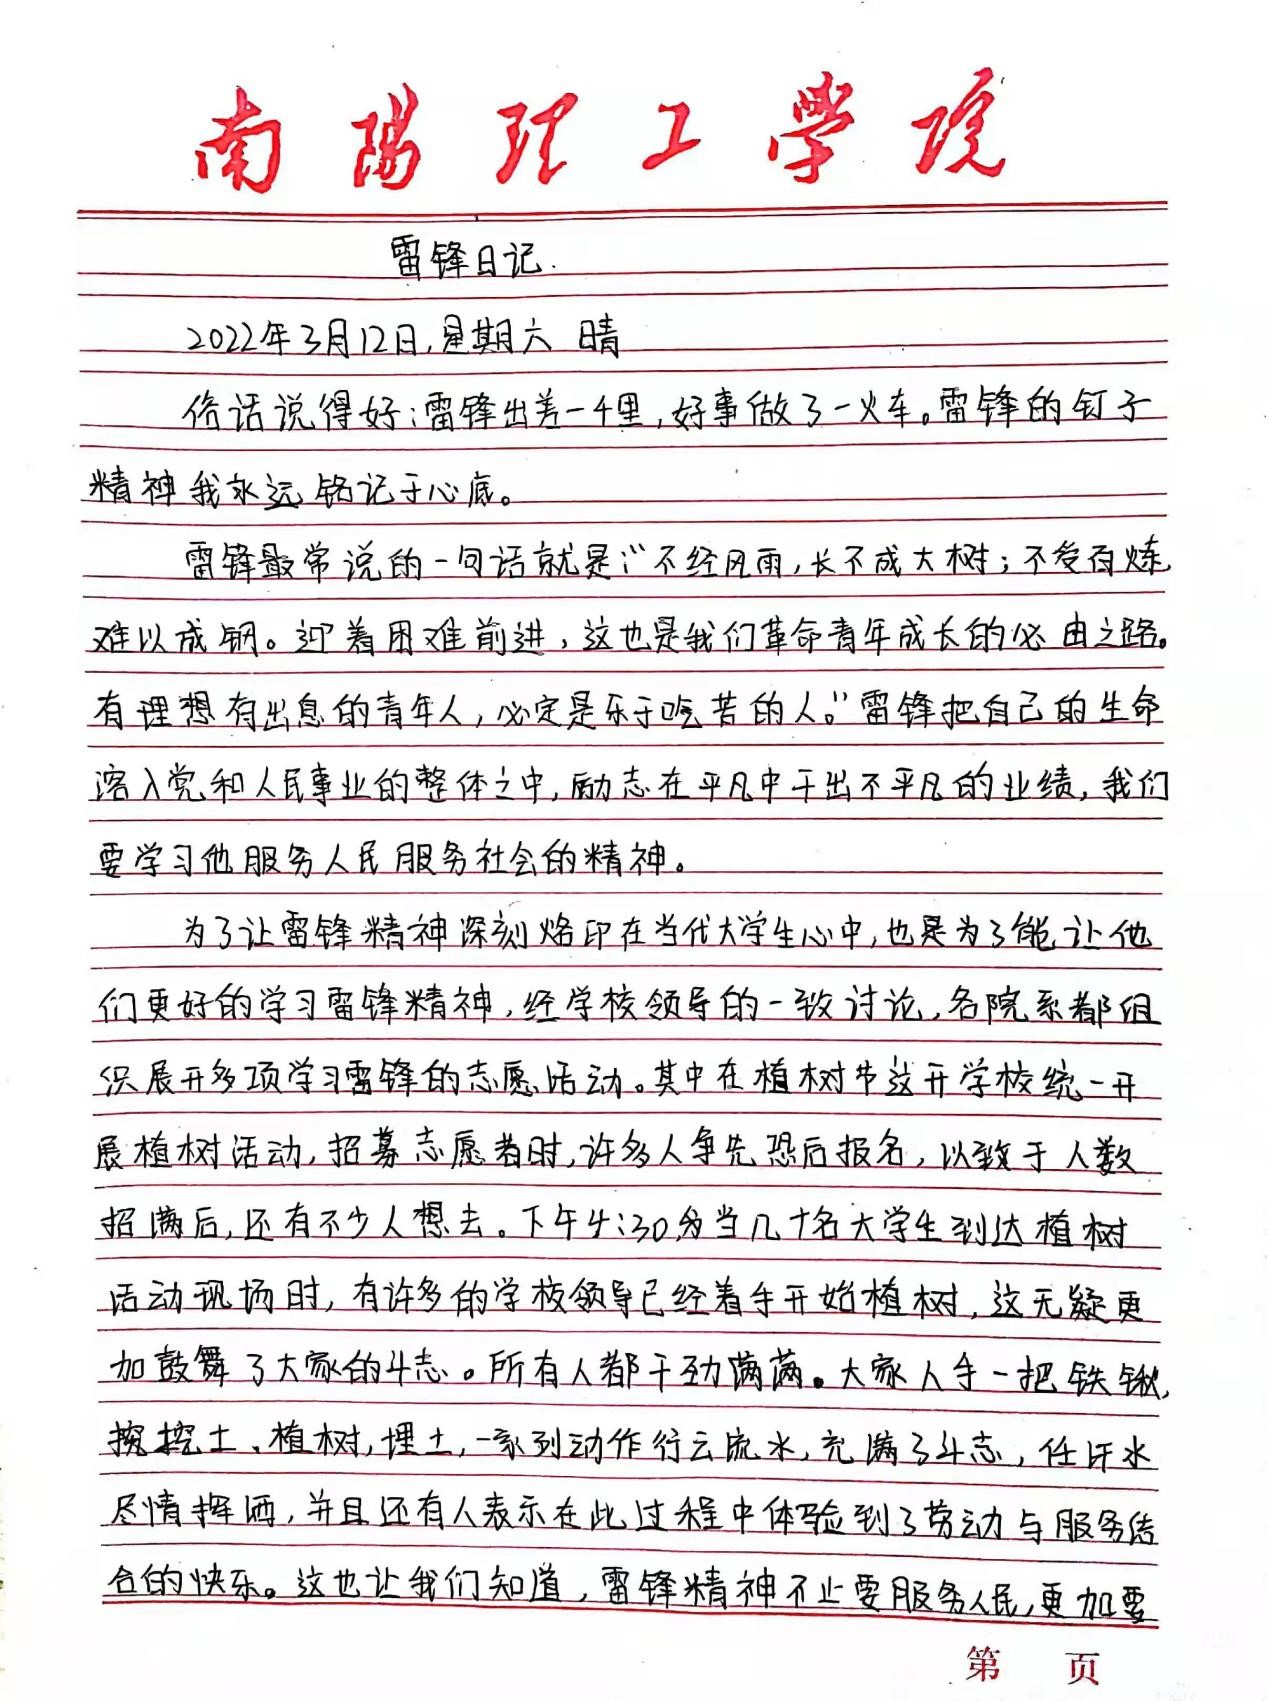 南阳理工学院
雷锋日记.
2022年3月12日,星期六 晴
俗话说得好:雷锋出差一千里,好事做了一火车。雷锋的钉子
精神我永远铭记于心底。
雷锋最常说的一句话就是:“不经风雨,长不成大树;不受百炼,
难以成钢。迎着困难前进,这也是我们革命青年成长的必由之路。
有理想有出息的青年人,必定是乐于吃苦的人。”雷锋把自己的生命
溶入党和人民事业的整体之中,励志在平凡中干出不平凡的业绩,我们
要学习他服务人民服务社会的精神。
为了让雷锋精神深刻烙印在当代大学生心中,也是为了能让他
们更好的学习雷锋精神,经学校领导的一致讨论,各院系都组
织展开多项学习雷锋的志愿活动。其中在植树节这开学校统一开
展植树活动,招募志愿者时,许多人争先恐后报名,以致于人数
招满后,还有不少人想去。下午4:30分当几十名大学生到达植树
活动现场时,有许多的学校领导已经着手开始植树,这无疑更
加鼓舞了大家的斗志。所有人都干劲满满。大家人手一把铁锹,
挖土、植树,埋土,一系列动作行云流水,充满了斗志,任汗水
尽情挥洒,并且还有人表示在此过程中体验到了劳动与服务结
合的快乐。这也让我们知道,雷锋精神不止要服务人民,更加要
第 页